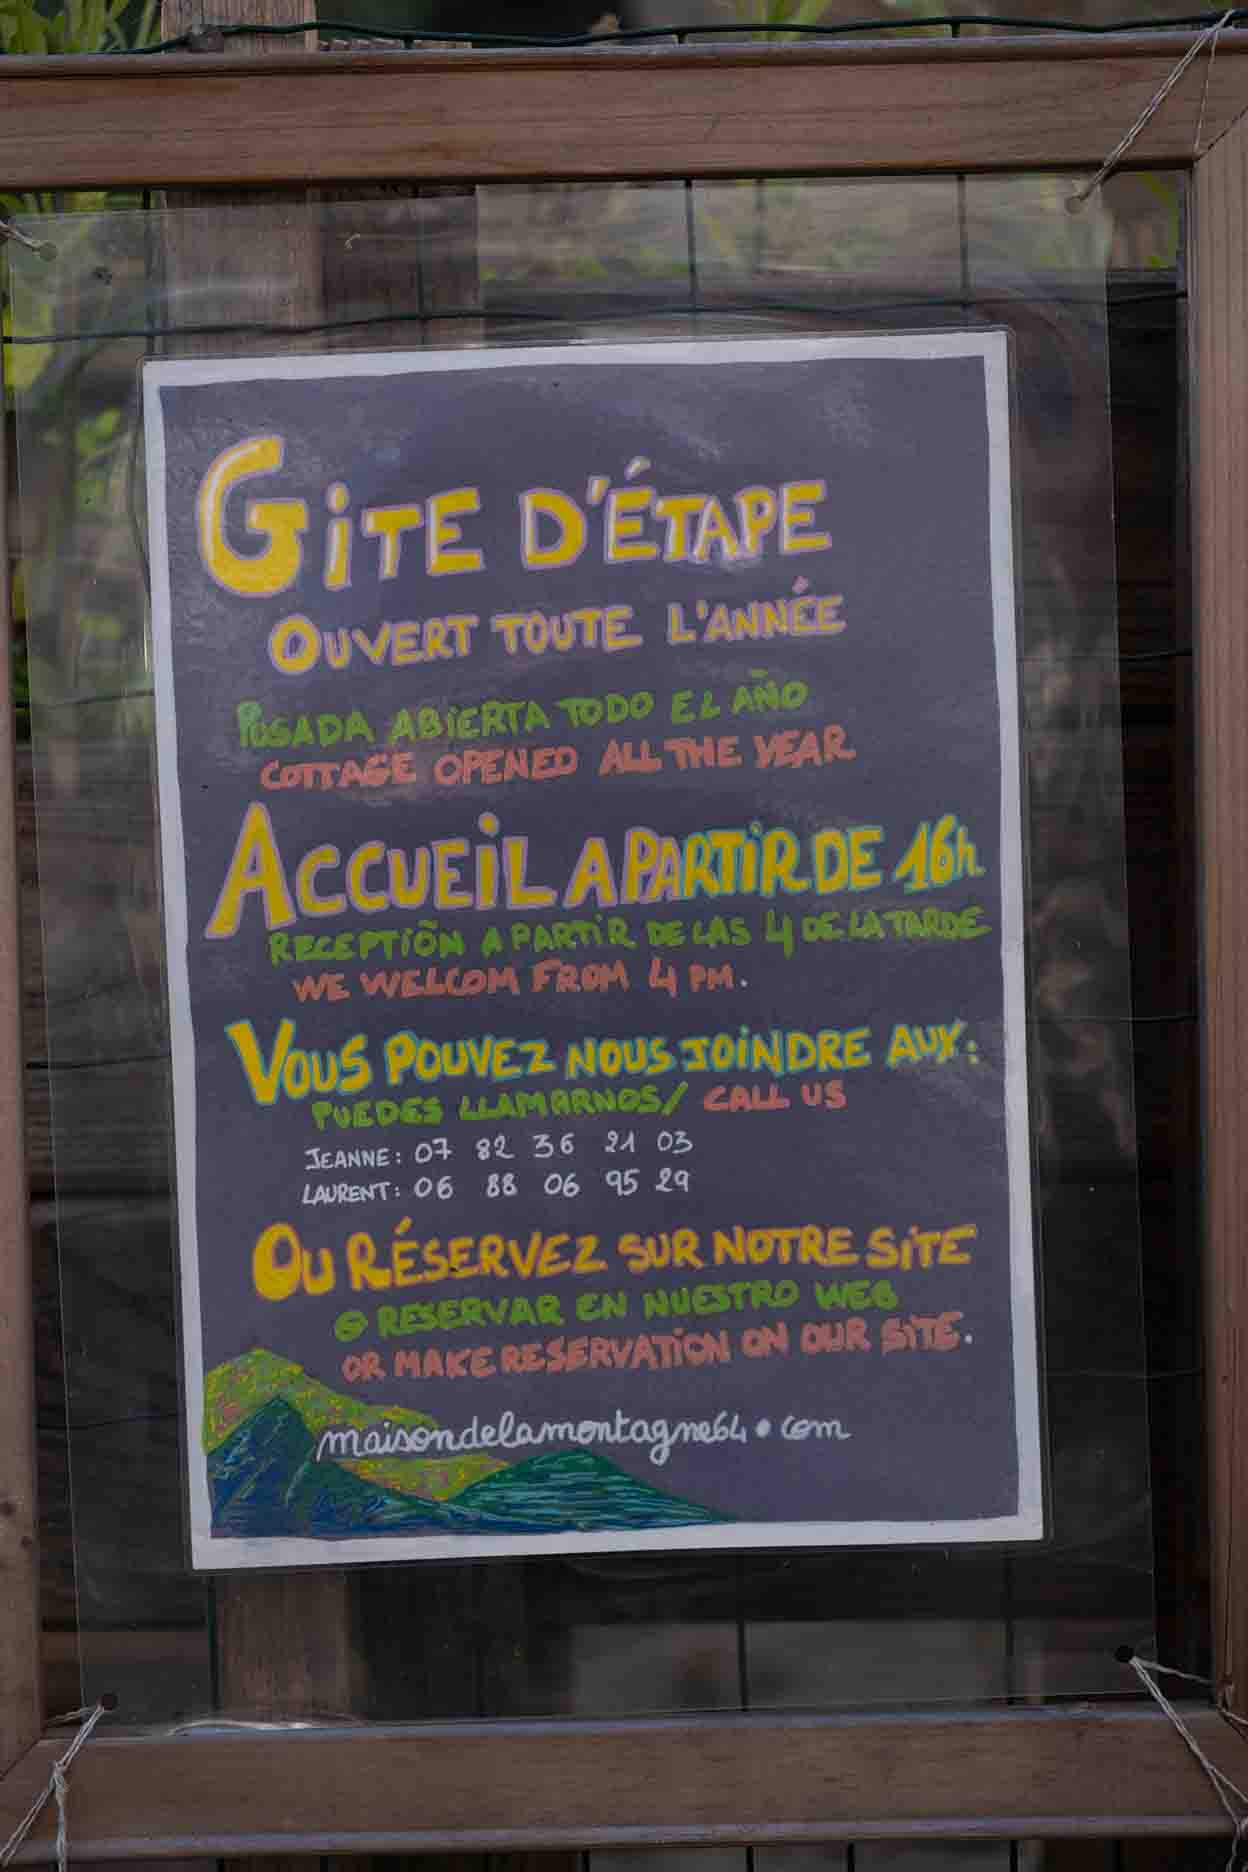 GiTE D'ÉTAPE
OUVERT TOUTE L'ANNÉE
POSADA ABiERTA TODO EL AÑO
COTTAGE OPENED ALL THE YEAR
ACCUEiL A PARTiR DE 16h.
RECEPTIÕN A PARTiR DE LAS 4 DE LA TARDE
WE WELCOM FROM 4 PM.
VOUS POUVEZ NOUS JOiNDRE AUX:
PUEDES LLAMARNOS/ CALL US
JEANNE: 07 82 36 21 03
LAURENT: 06 88 06 95 29
OU RÉSERVEZ SUR NOTRE SiTE
O RESERVAR EN NUESTRO WEB
OR MAKE RESERVATiON ON OUR SiTE.
maisondelamontagne64.com